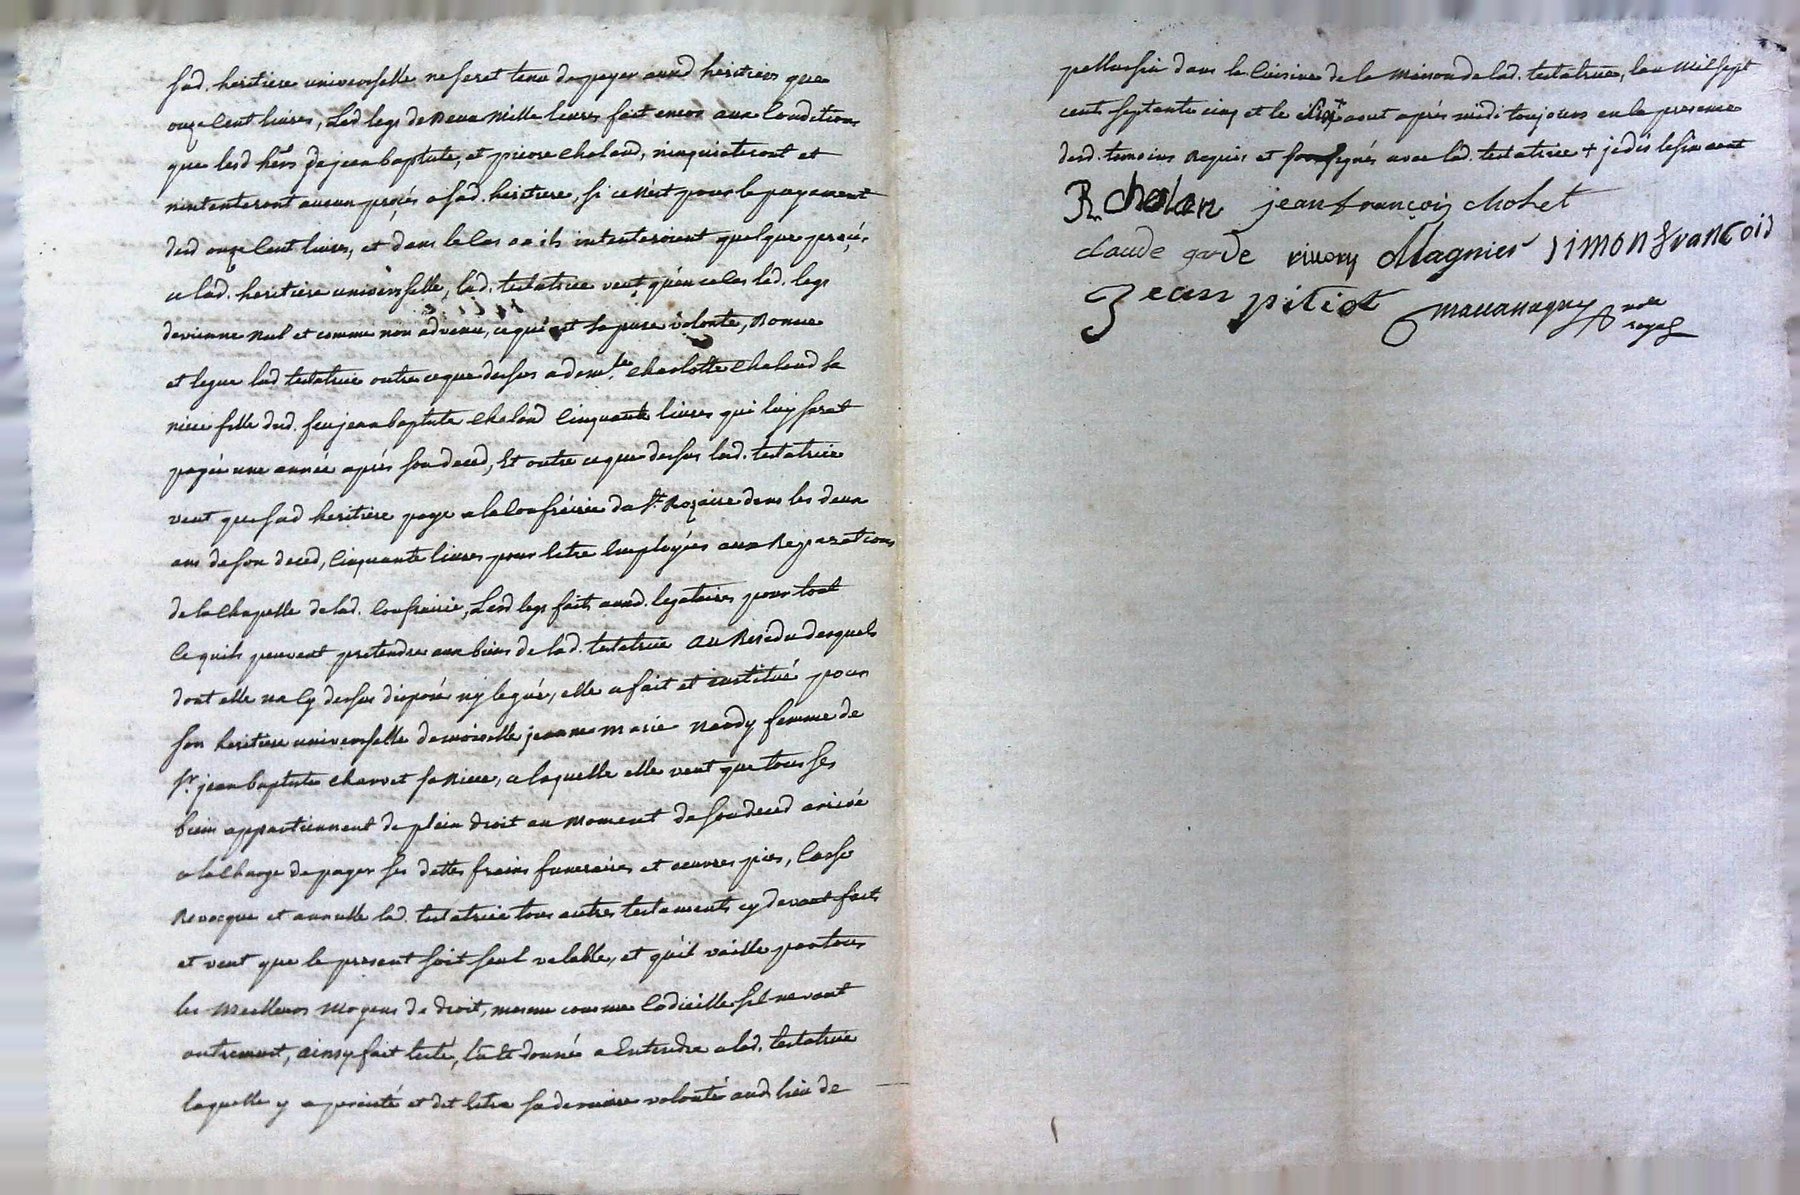 sad. heritiere universelle ne serat tenu de payer auxd heritiers que
onze Cent livres, Led legs de deux Mille livres fait encor aux Conditions
que lesd hers de jean baptiste, et pierre chaland, ninquieteront et
nintenteront aucun procés a sad. heritiere, si ce n'est pour le payement
desd onze Cent livres, et dans le Cas ou ils intenteroient quelque procés
a lad. heritiere universelle, lad. testatrice veut qu'en ce Cas led. legs
devienne Nul et comme non advenu, ce qui est sa pure volonte, Donne
et legue lad testatrice outre ce que dessus a demlle Charlotte Chaland sa
niece fille dud. feu jean baptiste Chaland Cinquante livres qui luy serat
payée une année aprés son deced, Et outre ce que dessus lad. testatrice
veut que sad heritiere paye a la Confrérie du St. Rozaire dans les deux
ans de son deced, Cinquante livres pour letre Employées aux Reparations
de la Chapelle de lad. Confrairie, Lesd legs faits auxd. legataires pour tout
Ce quils peuvent pretendre aux biens de lad. testatrice Au Residu desquels
dont elle na Cy dessus disposé ny legué, elle a fait et institué pour
son heritiere universelle demoiselle jeanne marie nardy femme de
Sr. jean baptiste charvet sa Niece, a laquelle elle veut que tous ses
biens appartiennent de plein droit au Moment de son deced arrivé
a la Charge de payer ses dettes fraix funeraires et oeuvres pies, Casse
Revocque et annulle lad. testatrice tous autres testaments cy devant faits
et veut que le present soit seul valable, et qu'il vaille par tous
les Meilleurs Moyens de droit, mesme comme Codicille sil ne vaut
autrement, Ainsy fait testé, lu et donné a Entendre a lad. testatrice
laquelle y a persisté et dit letre sa derniere volonté aud lieu de
pellussin dans la Cuisine de la Maison de lad. testatrice, lan Mil sept
cent septante cinq et le aout aprés midi toujours en la presence
desd. temoins Requis et signés avec lad. testatrice + je dis lesquels
R. chalan jean françois cholet
claude garde rivory Magnier simon François
Jean pitiot mauanagny nore
royal